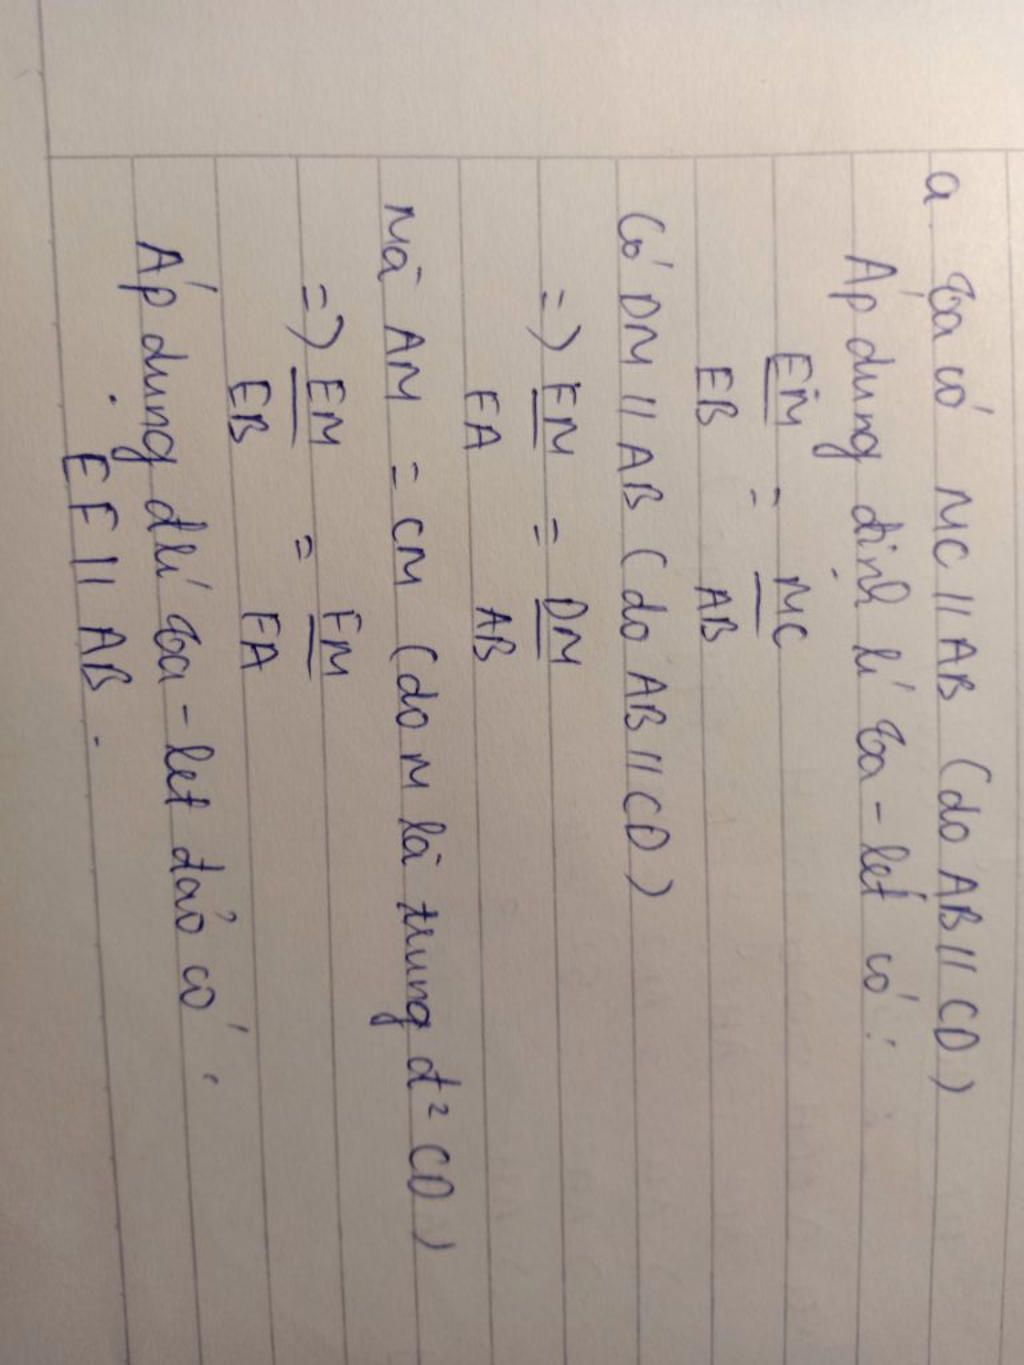 a. Ta có MC // AB (do AB // CD)
Áp dụng định lí Ta-let có:
EM/EB = MC/AB
Có DM // AB (do AB // CD)
=) FM/FA = DM/AB
Mà AM = CM (do M là trung đ² CD)
=) EM/EB = FM/FA
Áp dụng đlí Ta-let đảo có,
EF // AB.